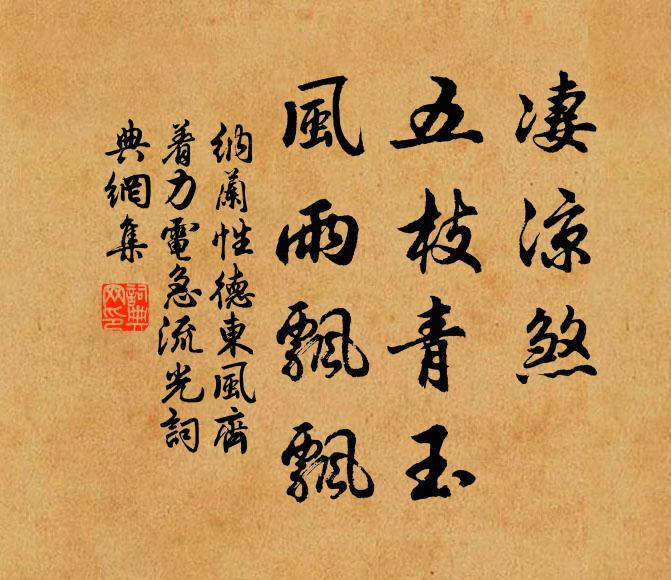 凄涼煞
五枝青玉
風雨飄飄
納蘭性德東風齊
着力電急流光詞
典網集
詞典
网印